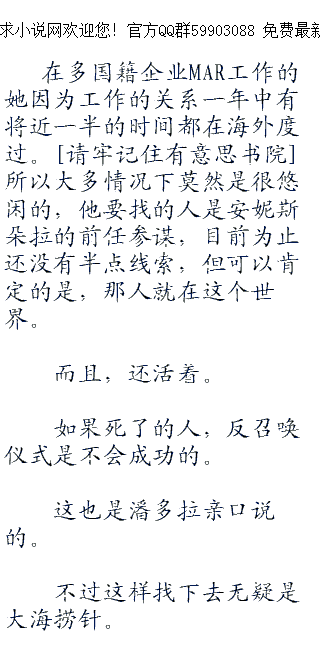 求小说网欢迎您! 官方QQ群59903088 免费最新
在多国籍企业MAR工作的
她因为工作的关系一年中有
将近一半的时间都在海外度
过。[请牢记住有意思书院]
所以大多情况下莫然是很悠
闲的，他要找的人是安妮斯
朵拉的前任参谋，目前为止
还没有半点线索，但可以肯
定的是，那人就在这个世
界。
而且，还活着。
如果死了的人，反召唤
仪式是不会成功的。
这也是潘多拉亲口说
的。
不过这样找下去无疑是
大海捞针。